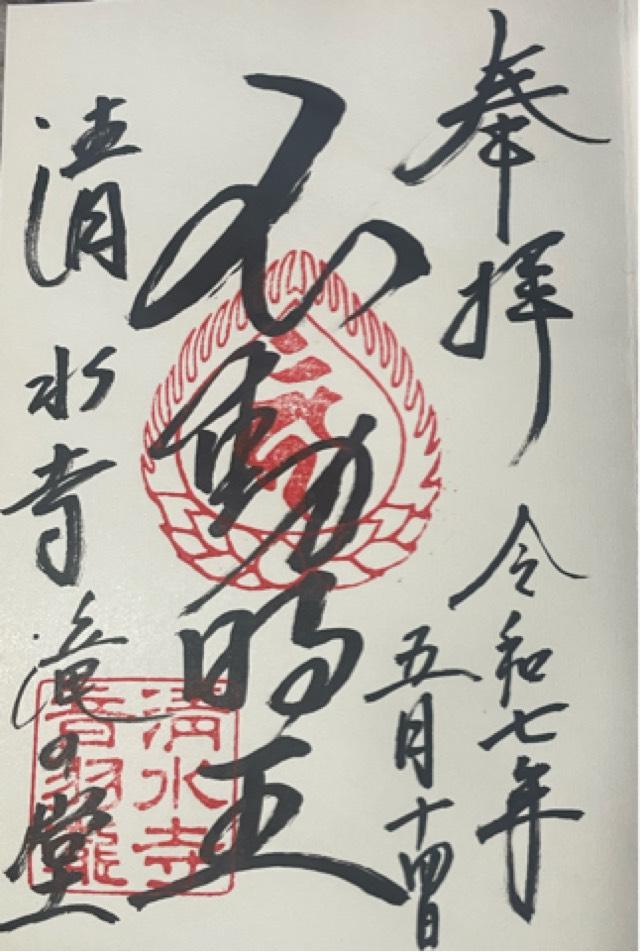 奉拝
令和七年
五月十四日
不動明王
清水寺 滝の堂
清水寺
音羽瀧